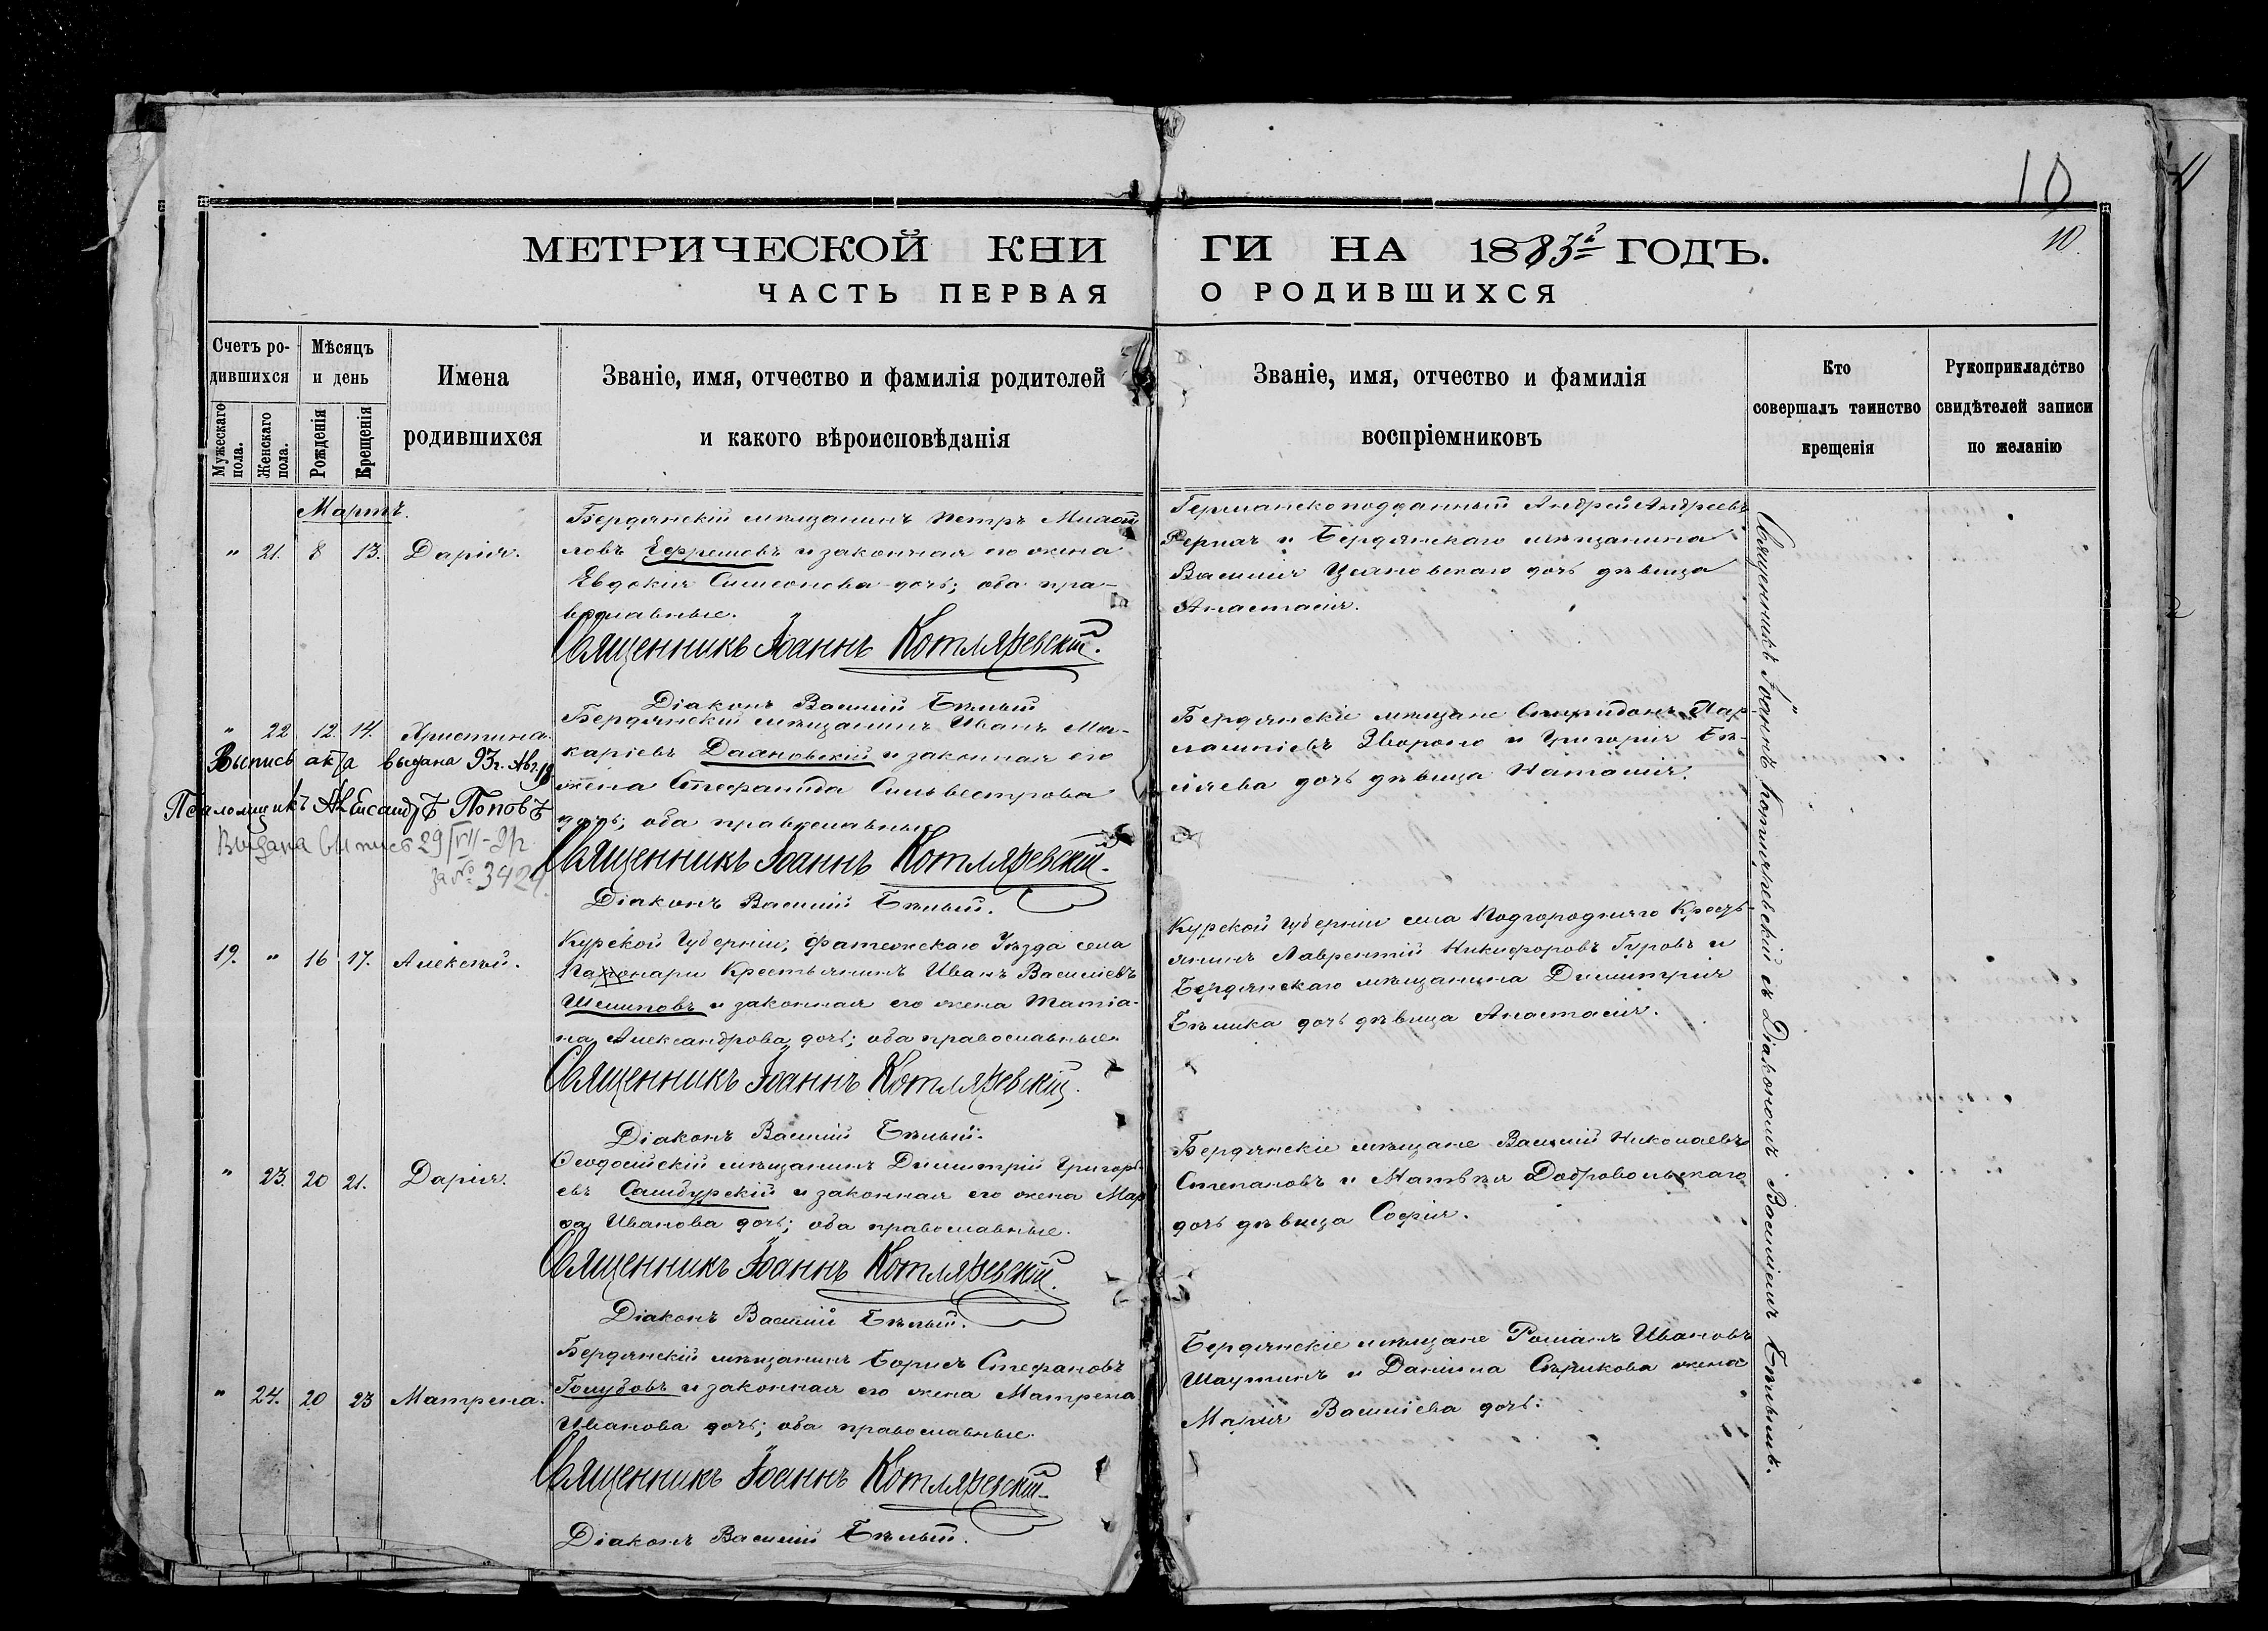 10
МЕТРИЧЕСКОЙ КНИ
ГИ НА 1883й ГОДЪ.
10
ЧАСТЬ ПЕРВАЯ
О РОДИВШИХСЯ
Счетъ ро-
дившихся
Мужескаго пола.
Женскаго пола.
Мѣсяцъ
и день
Рожденія
Крещенія
Имена
родившихся
Званіе, имя, отчество и фамилія родителей
и какого вѣроисповѣданія
Званіе, имя, отчество и фамилія
воспріемниковъ
Кто
совершалъ таинство
крещенія
Рукоприкладство
свидѣтелей записи
по желанію
Мартъ.
" 21. 8 13. Дарія.
Бердянскій мѣщанинъ Петръ
ловъ Ефремовъ и законная его жена
Евдокія Симеонова дочь; оба пра-
вославные.
Священникъ Іоаннъ Котляревскій.
Діаконъ Василій Бѣлый
Германскоподданный Андрей Андреевъ
и Бердянскаго мѣщанина
Василія дочь дѣвица
Анастасія.
" 22 12. 14. Христина.
Выпись акта выдана 93 г. Авг. 18
Псаломщикъ Александръ Поповъ
Выдана выпись 29/VII-
за № 3424.
Бердянскій мѣщанинъ Иванъ Ма-
каріевъ Даановскій и законная его
жена Стефанида Сильвестрова
дочь; оба православные
Священникъ Іоаннъ Котляревскій.
Діаконъ Василій Бѣлый.
Бердянскіе мѣщане Спиридонъ
Зворого и Григорія Бѣ-
ляева дочь дѣвица Наталія.
19. " 16 17. Алексѣй.
Курской Губерніи, Фатежскаго Уѣзда села
Крестьянинъ Иванъ Василіевъ
и законная его жена Татіа-
на Александрова дочь; оба православные
Священникъ Іоаннъ Котляревскій.
Діаконъ Василій Бѣлый.
Курской Губерніи села Подгородняго Кресть-
янинъ Лаврентій Никифоровъ Гуровъ и
Бердянскаго мѣщанина Димитрія
Бѣлика дочь дѣвица Анастасія.
" 23. 20 21. Дарія.
Ѳеодосійскій мѣщанинъ Димитрій Григорь-
евъ Самбурскій и законная его жена Мар
ѳа Иванова дочь; оба православные.
Священникъ Іоаннъ Котляревскій.
Діаконъ Василій Бѣлый.
Бердянскіе мѣщане Василій Николаевъ
Степановъ и Матвѣя Добровольскаго
дочь дѣвица Софія.
" 24. 20 23 Матрена.
Бердянскій мѣщанинъ Борисъ Стефановъ
Голубовъ и законная его жена Матрена
Иванова дочь; оба православные.
Священникъ Іоаннъ Котляревскій.
Діаконъ Василій Бѣлый.
Бердянскіе мѣщане Романъ Ивановъ
Шаутинъ и Даніила Сѣрикова жена
Марія Василіева дочь.
Священникъ Іоаннъ Котляревскій съ Діакономъ Василіемъ Бѣлымъ.